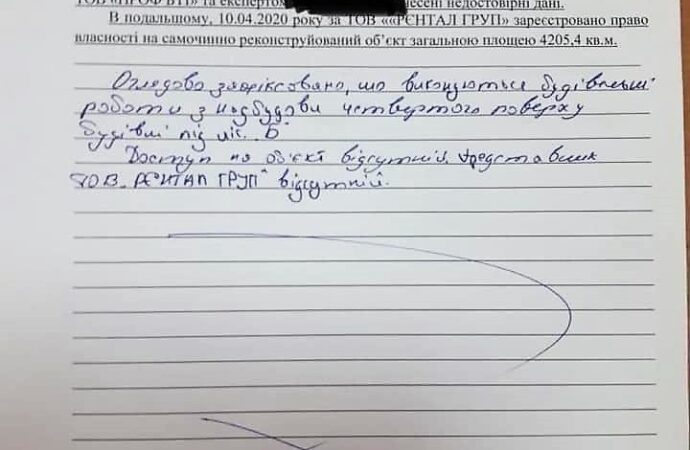 ТОВ «ПРОФ БТІ» та експертом несені недостовірні дані.
В подальшому, 10.04.2020 року за ТОВ ««РЄНТАЛ ГРУП» зареєстровано право
власності на самочинно реконструйований об’єкт загальною площею 4205,4 кв.м.
Оглядово зафіксовано, що виконуються будівельні
роботи з надбудови четвертого поверху
будівлі під літ. „Б"
Доступ на об'єкт відсутній, представник
ТОВ „РЄНТАЛ ГРУП" відсутній.